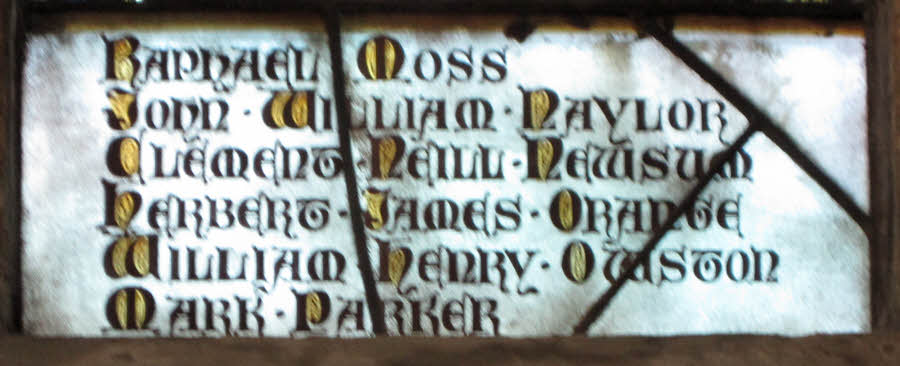 Raphael Moss
John · William · Naylor
Clement · Neill · Newsum
Herbert · James · Orange
William Henry · Owston
Mark · Parker